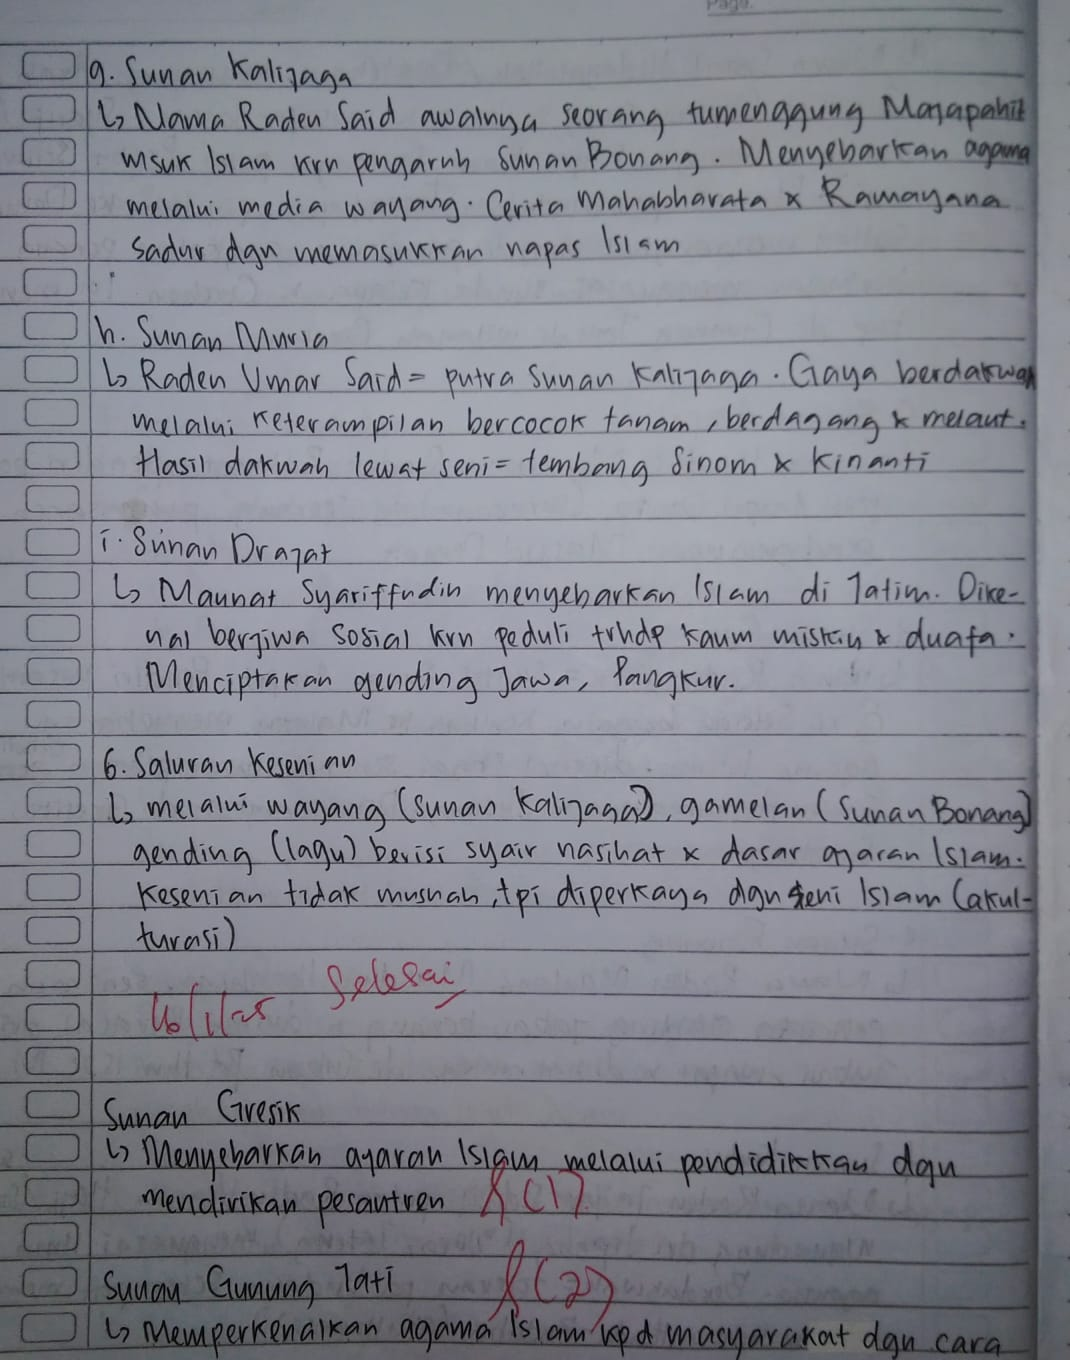 Page.
g. Sunan Kalijaga
↳ Nama Raden Said awalnya seorang tumenggung Majapahit
msuk Islam krn pengaruh Sunan Bonang. Menyebarkan agama
melalui media wayang. Cerita Mahabharata & Ramayana
sadur dgn memasukkan napas Islam
h. Sunan Muria
↳ Raden Umar Said = putra Sunan Kalijaga. Gaya berdakwah
melalui keterampilan bercocok tanam, berdagang & melaut.
Hasil dakwah lewat seni = tembang Sinom & Kinanti
i. Sunan Drajat
↳ Maunat Syariffudin menyebarkan Islam di Jatim. Dike-
nal berjiwa sosial krn peduli trhdp kaum miskin & duafa.
Menciptakan gending Jawa, Pangkur.
6. Saluran Kesenian
↳ melalui wayang (Sunan Kalijaga), gamelan (Sunan Bonang)
gending (lagu) berisi syair nasihat & dasar ajaran Islam.
Kesenian tidak musnah, tpi diperkaya dgn seni Islam (akul-
turasi)
Selesai
Sunan Gresik
↳ Menyebarkan ajaran Islam melalui pendidikkan dgn
mendirikan pesantren (1)
Sunan Gunung Jati (2)
↳ Memperkenalkan agama Islam kpd masyarakat dgn cara